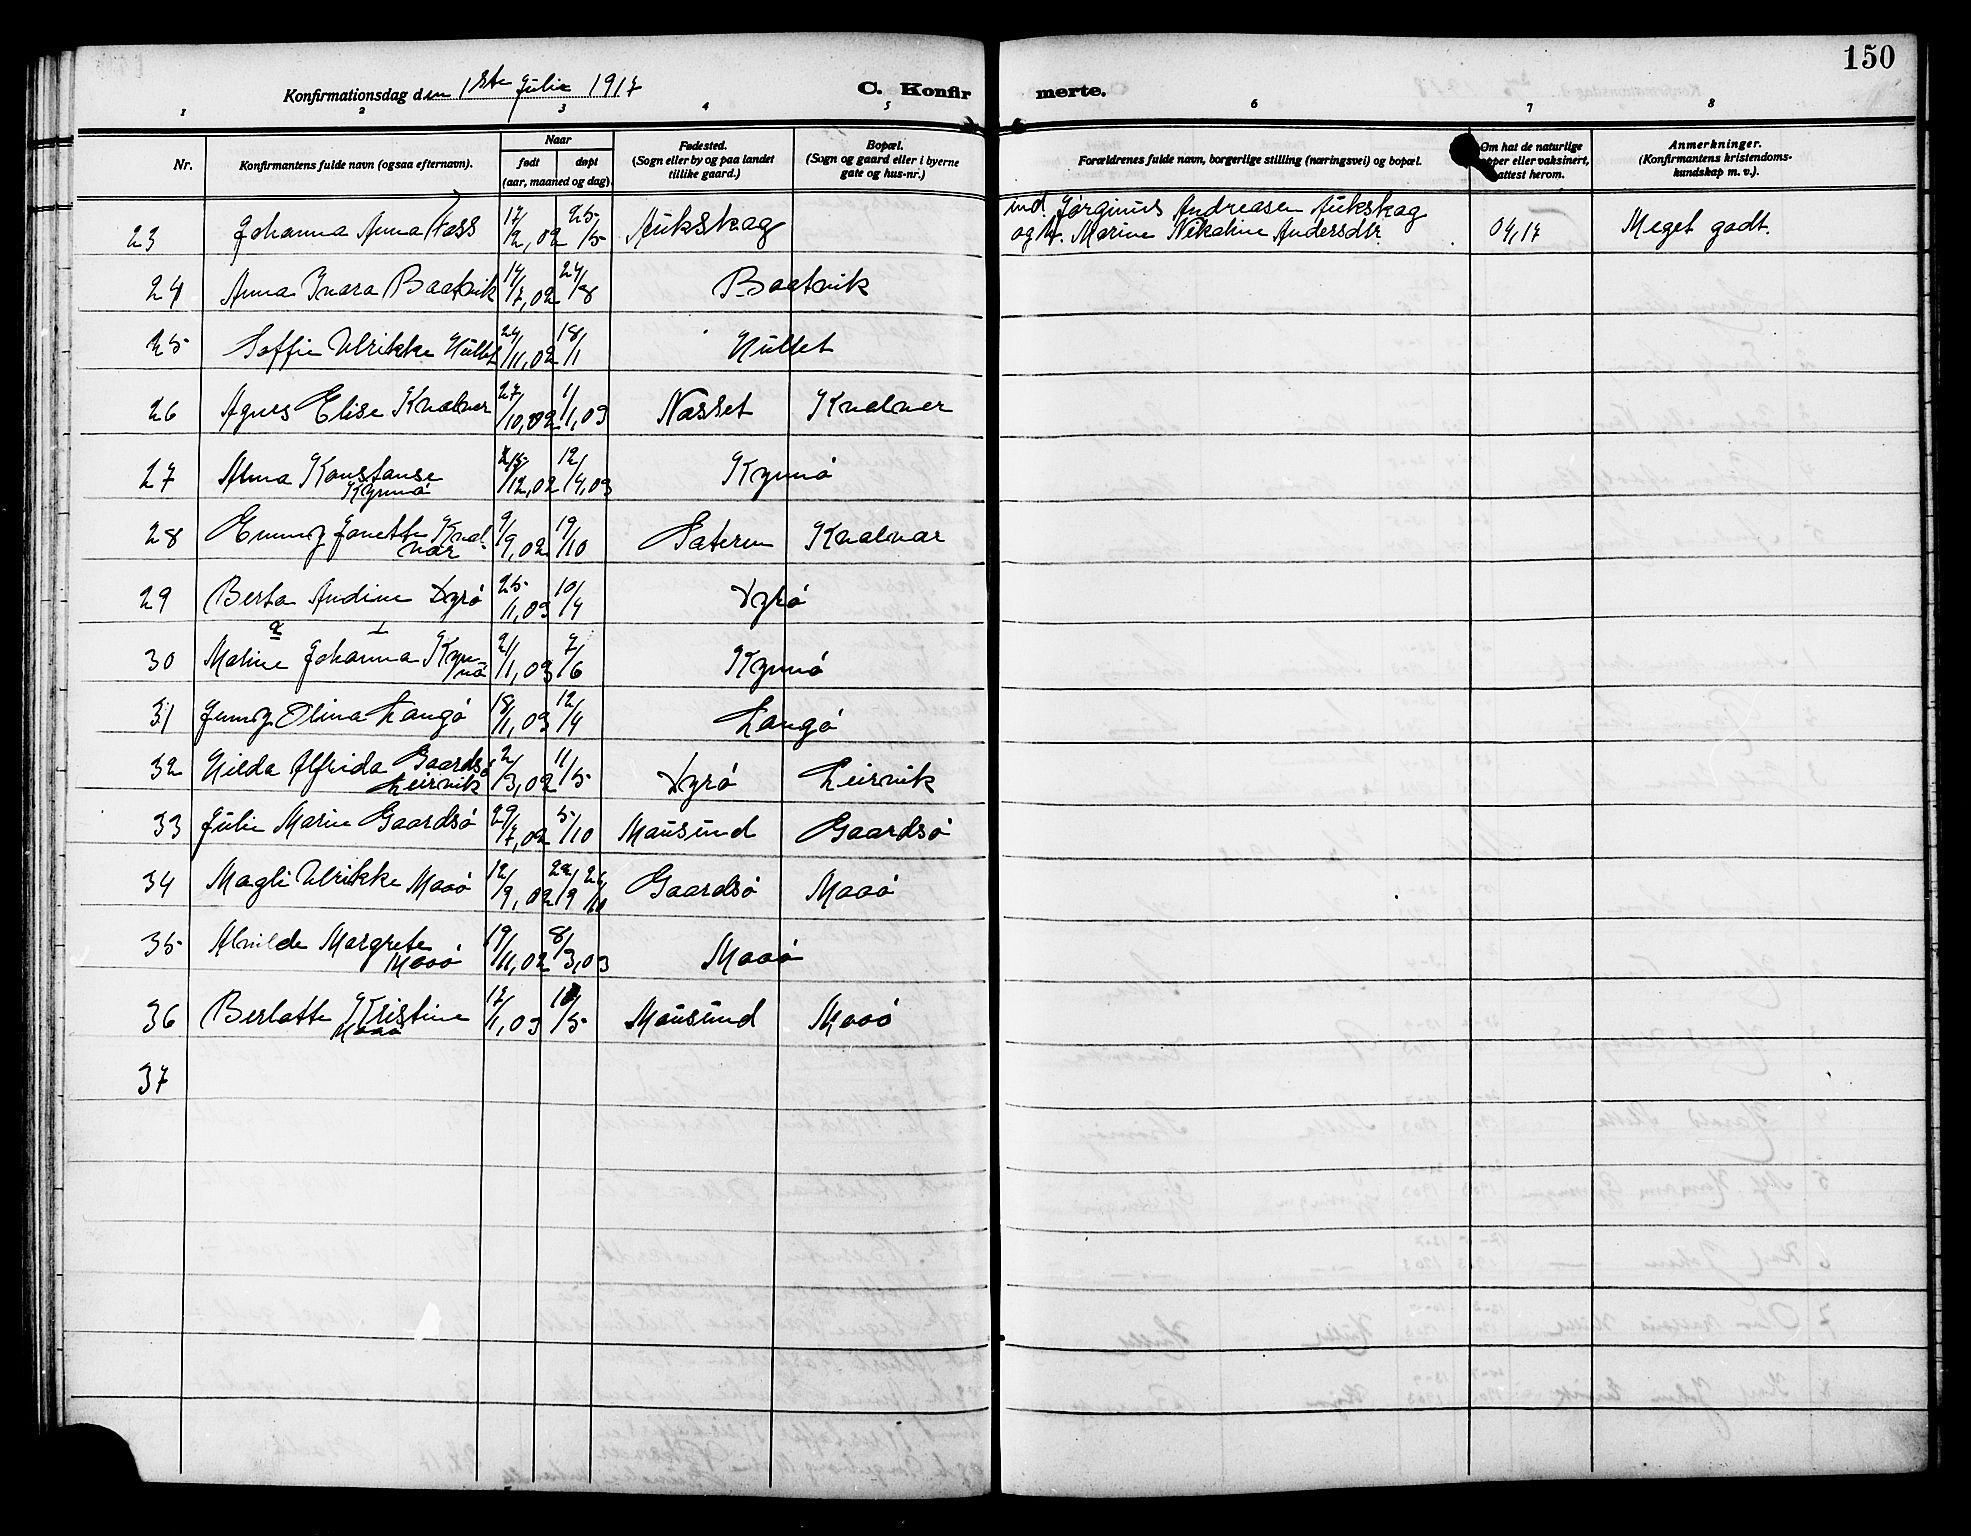 150
Konfirmationsdag den 1ste Julie 1917
C. Konfirmerte.
1 2 3 4 5 6 7 8
Nr. Konfirmantens fulde navn (ogsaa efternavn). Naar født døpt (aar, maaned og dag). Fødested. (Sogn eller by og paa landet tillike gaard.) Bopæl. (Sogn og gaard eller i byerne gate og hus-nr.) Forældrenes fulde navn, borgerlige stilling (næringsvei) og bopæl. Om hat de naturlige kopper eller vaksinert, attest herom. Anmerkninger. (Konfirmantens kristendomskundskap m. v.).
23 Johanna Anna Foss 17/2, 02 25/5 Aukskag ind. Jørginus Andreasen Aukskag
og H. Marine Nekoline Andersdtr. 04, 17 Meget godt.
24 Anna Ivara Baatvik 14/7, 02 24/8 Baatvik
25 Soffie Ulrikke Hullet 24/11, 02 18/1 Hullet
26 Agnes Elise Kvalvær 27/10, 02 1/1, 03 Næsset Kvalvær
27 Alma Konstanse
Kyrnø /12, 02 12/4, 03 Kyrnø
28 Emmy Janette Kval-
vær 9/9, 02 19/10 Sæteren Kvalvær
29 Berta Andine Dyrø 25/1, 03 10/4 Dyrø
30 Maline Johanna Kyr-
nø 2/1, 03 7/6 Kyrnø
31 Jenny Olina Langø 18/1, 03 12/4 Langø
32 Hilda Alfrida Gaardsø
Leirvik 2/3, 02 11/5 Dyrø Leirvik
33 Julie Marie Gaardsø 29/7, 02 5/10 Mausund Gaardsø
34 Magli Ulrikke Maaø 12/9, 02 /9 26/10 Gaardsø Maaø
35 Alvilde Margrete
Maaø 19/11, 02 8/3, 03 Maaø
36 Berlatte Kristine
Maaø 17/1, 03 10/5 Mausund Maaø
37